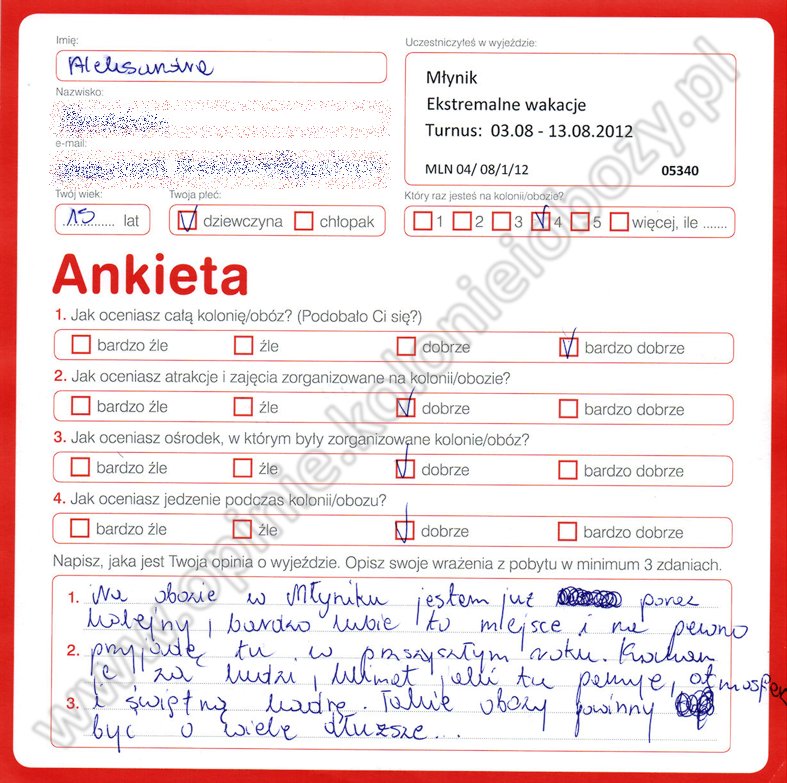 Imię:
Aleksandra
Nazwisko:
e-mail:
Twój wiek:
15 lat
Twoja płeć:
dziewczyna chłopak
Uczestniczyłeś w wyjeździe:
Młynik
Ekstremalne wakacje
Turnus: 03.08 - 13.08.2012
MLN 04/ 08/1/12 05340
Który raz jesteś na kolonii/obozie?
1 2 3 4 5 więcej, ile .......
Ankieta
1. Jak oceniasz całą kolonię/obóz? (Podobało Ci się?)
bardzo źle źle dobrze bardzo dobrze
2. Jak oceniasz atrakcje i zajęcia zorganizowane na kolonii/obozie?
bardzo źle źle dobrze bardzo dobrze
3. Jak oceniasz ośrodek, w którym były zorganizowane kolonie/obóz?
bardzo źle źle dobrze bardzo dobrze
4. Jak oceniasz jedzenie podczas kolonii/obozu?
bardzo źle źle dobrze bardzo dobrze
Napisz, jaka jest Twoja opinia o wyjeździe. Opisz swoje wrażenia z pobytu w minimum 3 zdaniach.
1. Na obozie w Młyniku jestem już poraz
kolejny, bardzo lubie to miejsce i na pewno
2. przyjadę tu w przyszłym roku. Kocham
je za ludzi, klimat jaki tu panuje, atmosfer
3. i świętną kadrę. Takie obozy powinny
być o wiele dłuższe...
www.opinie.kolonieiobozy.pl